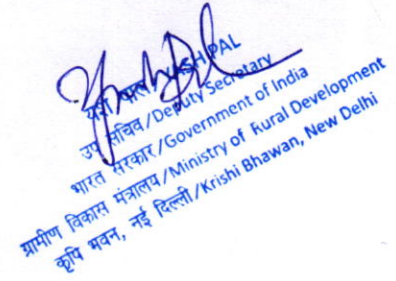 PAL
उप सचिव/Deputy Secretary
भारत सरकार/Government of India
ग्रामीण विकास मंत्रालय/Ministry of Rural Development
कृषि भवन, नई दिल्ली/Krishi Bhawan, New Delhi